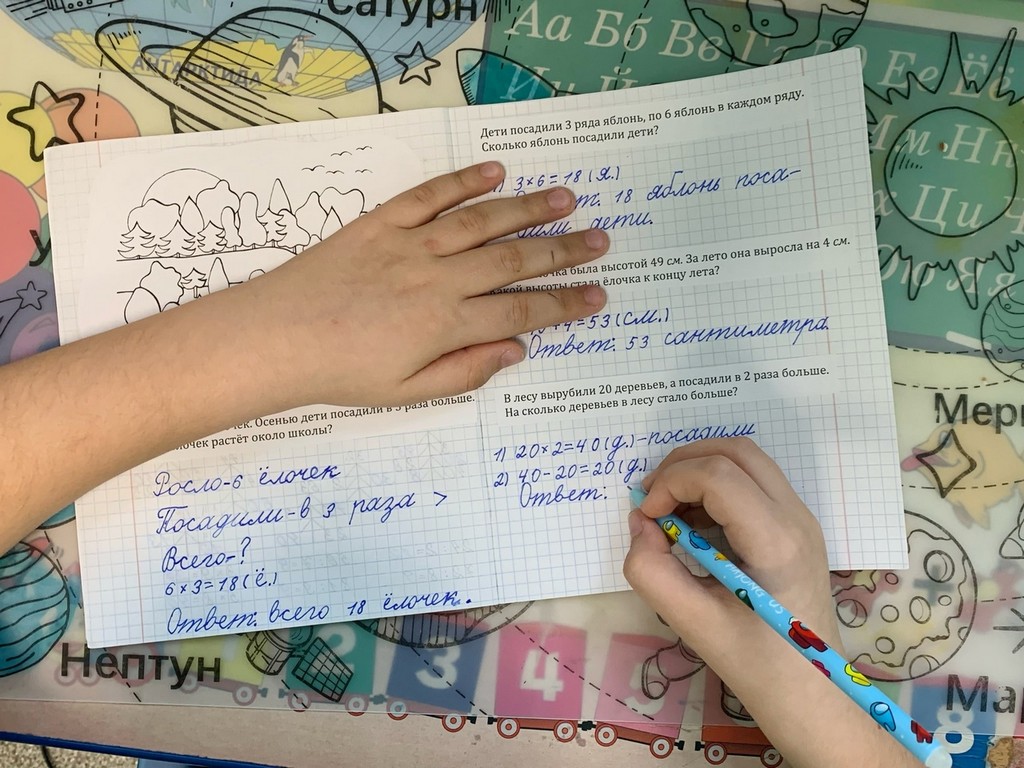 Сатурн
АНТАРКТИДА
Аа Бб Вв Гг Ее Ёё
Ии Й
Мм Нн
Цц Ч
Юю Яя
Дети посадили 3 ряда яблонь, по 6 яблонь в каждом ряду.
Сколько яблонь посадили дети?
3×6=18 (я.)
18 яблонь поса-
дети.
была высотой 49 см. За лето она выросла на 4 см.
высоты стала ёлочка к концу лета?
+4=53 (см.)
Ответ: 53 сантиметра
В лесу вырубили 20 деревьев, а посадили в 2 раза больше.
На сколько деревьев в лесу стало больше?
1) 20×2=40 (д.)-посадили
2) 40-20=20 (д.)
Ответ:
Осенью дети посадили в 3 раза больше.
растёт около школы?
Росло-6 ёлочек
Посадили-в 3 раза >
Всего-?
6×3=18 (ё.)
Ответ: всего 18 ёлочек.
Нептун
Мерк
Ма
2 3 4 5 8